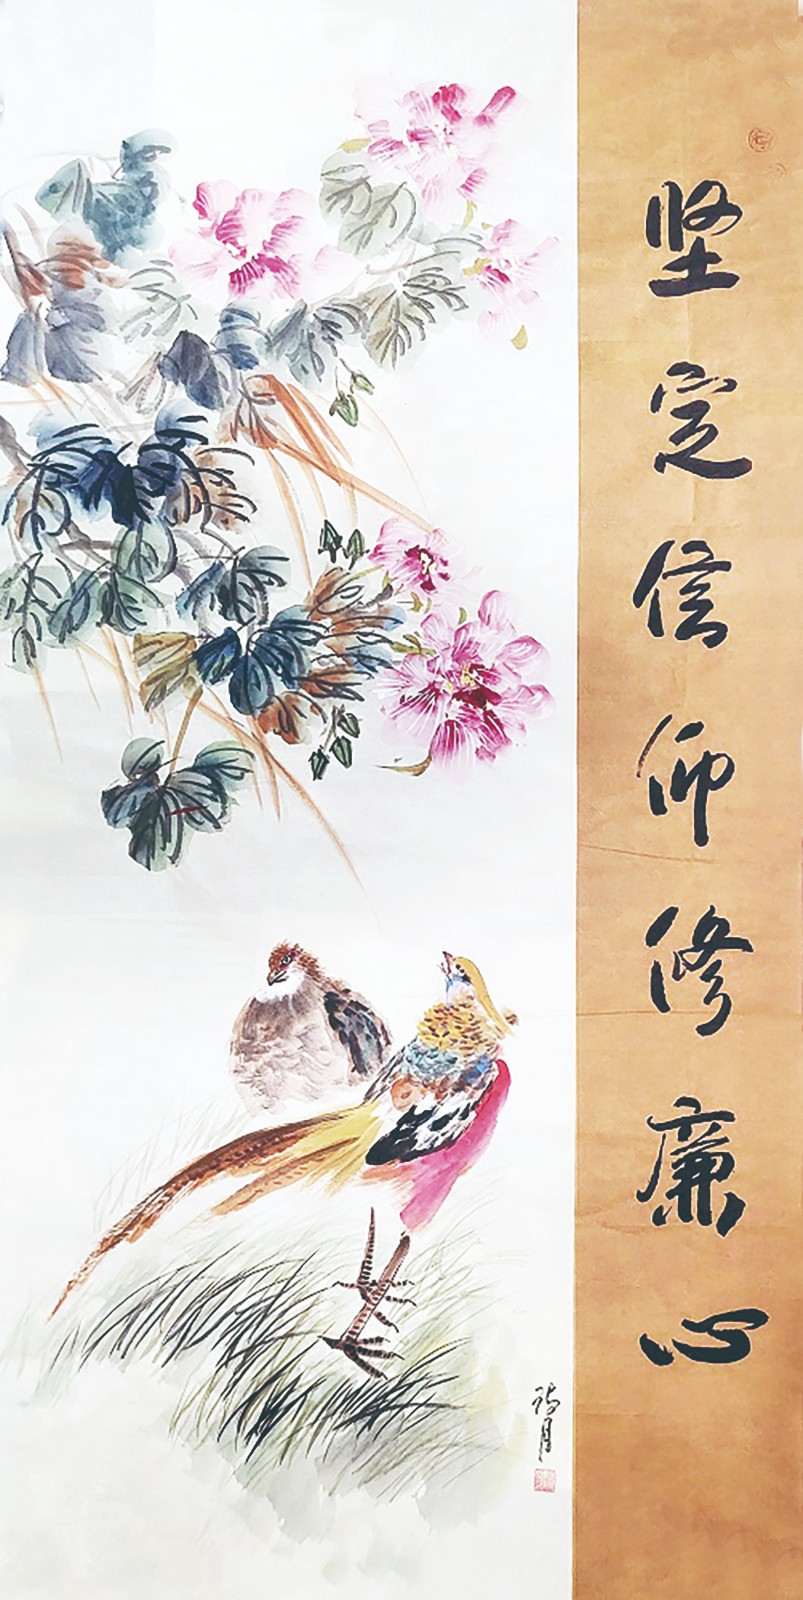 坚定信仰修廉心